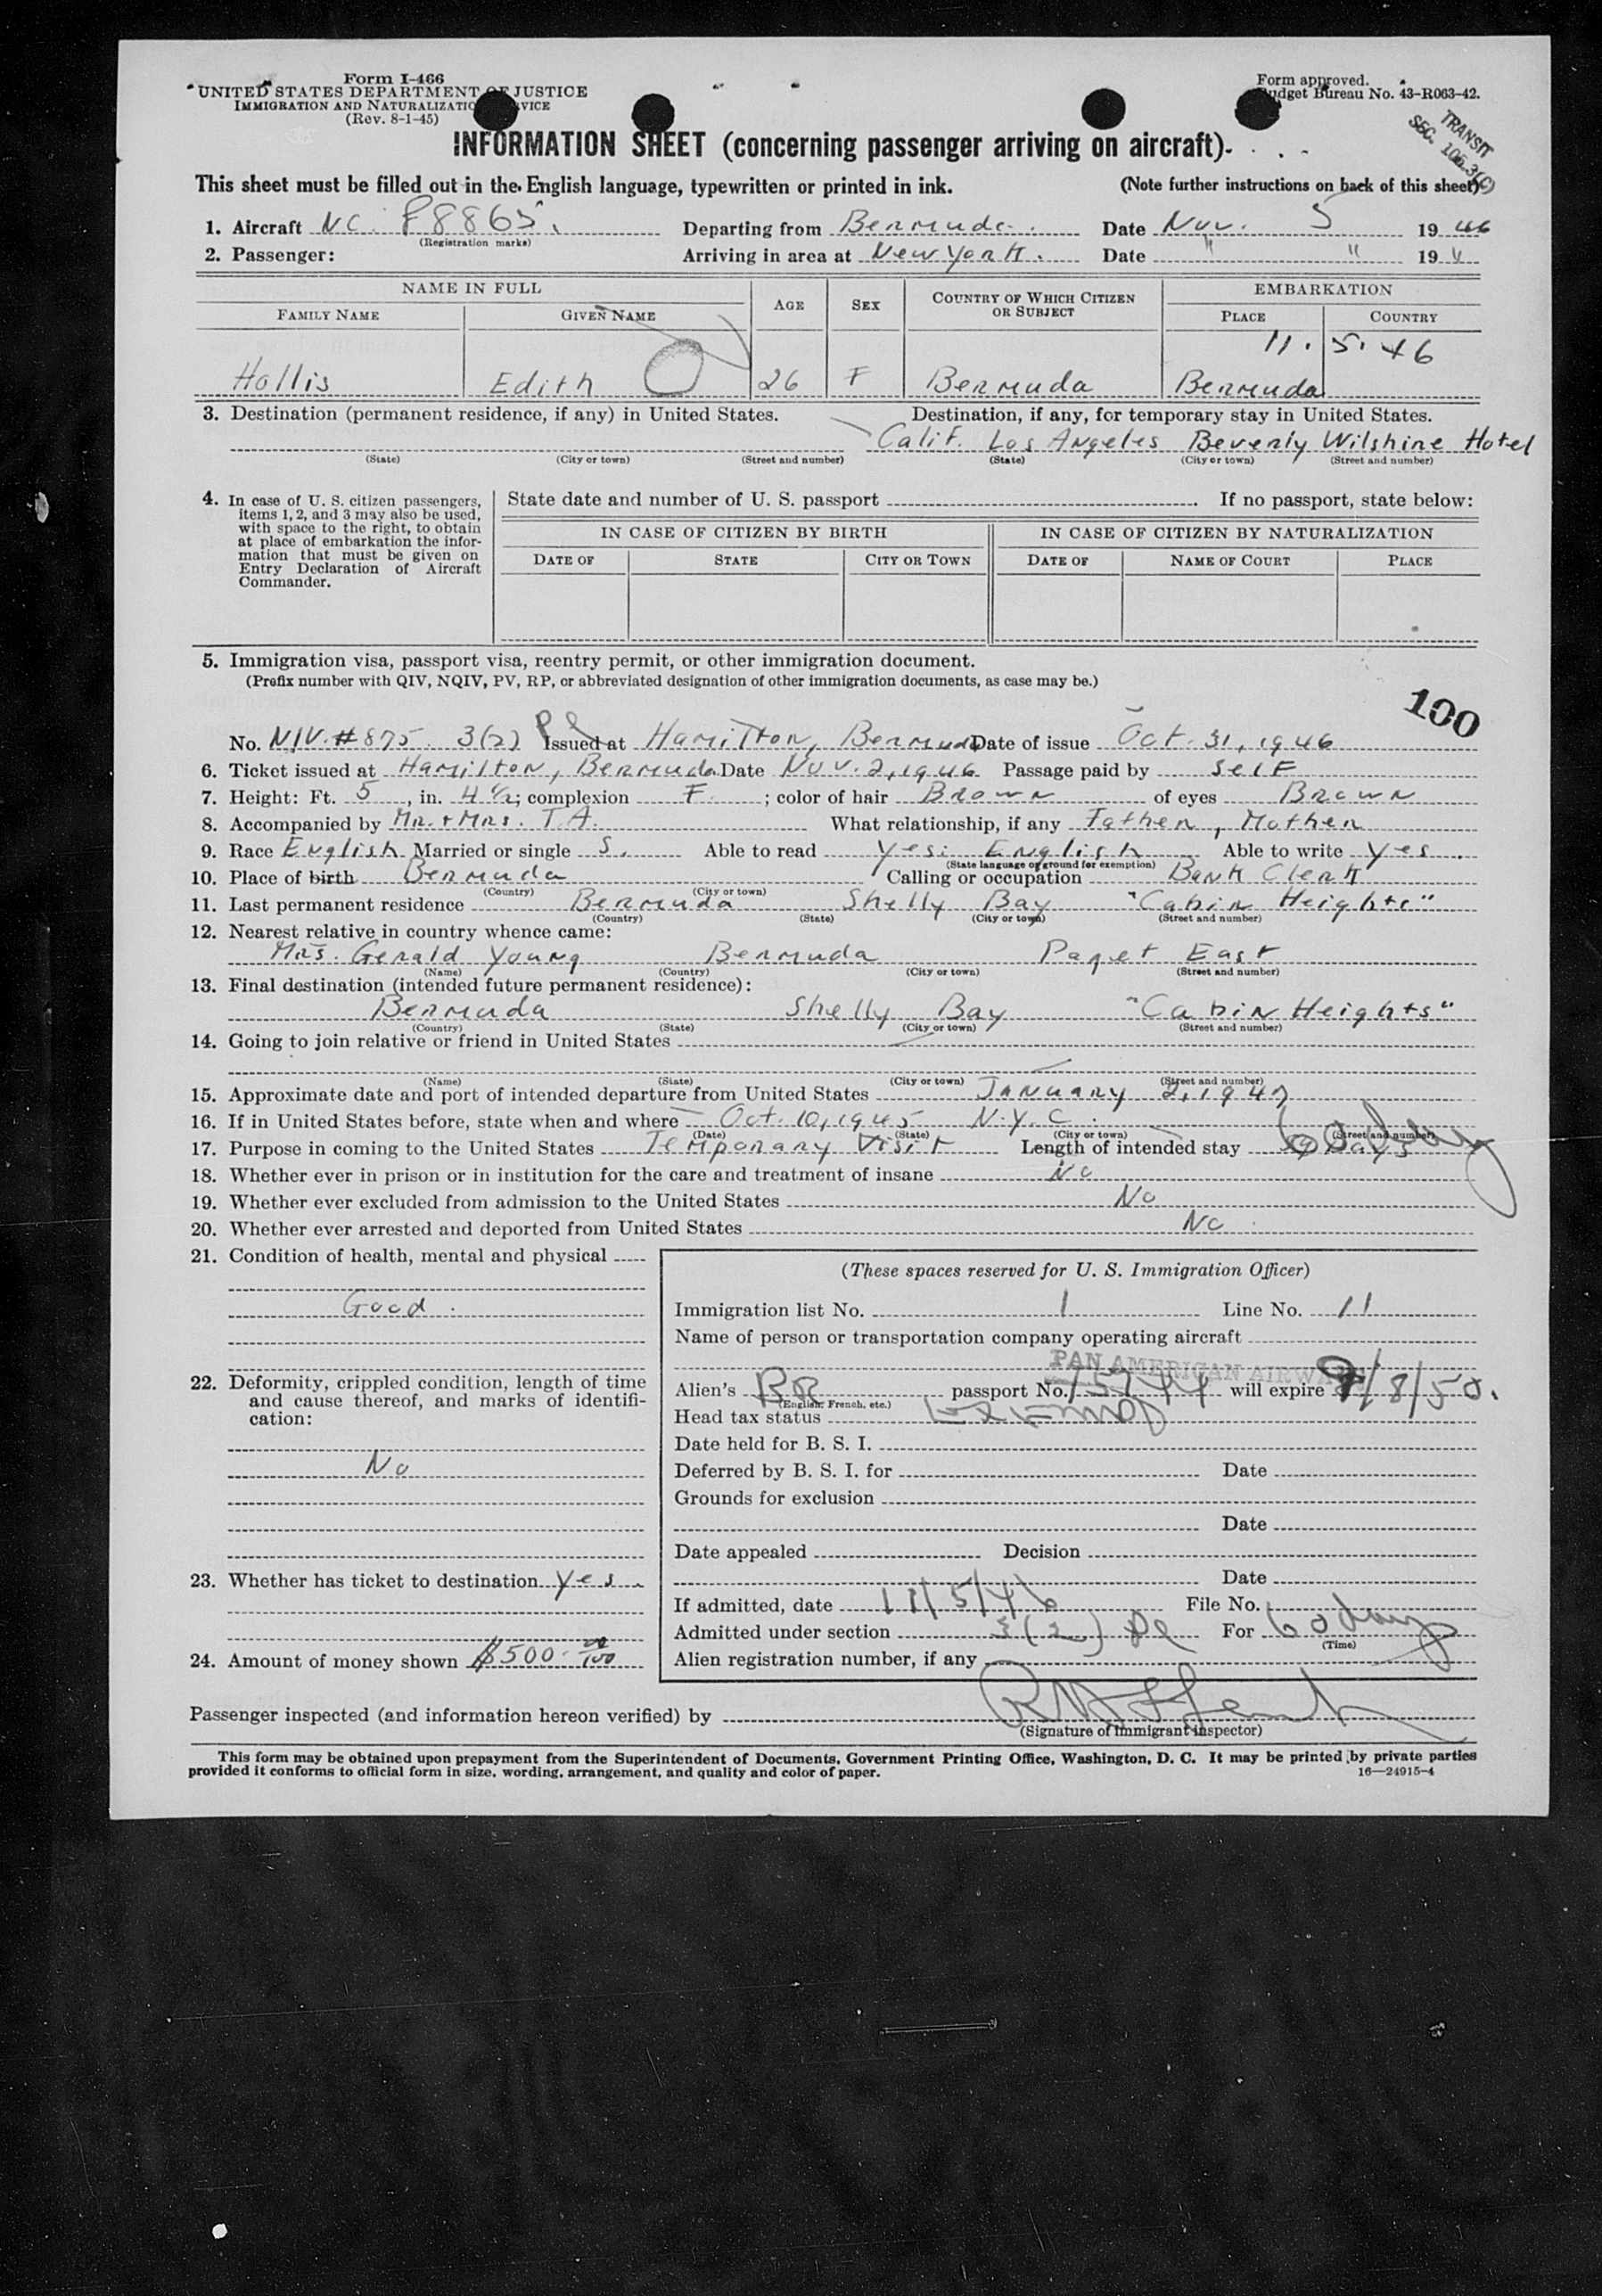 Form I-466
UNITED STATES DEPARTMENT OF JUSTICE
IMMIGRATION AND NATURALIZATION SERVICE
(Rev. 8-1-45)
Form approved.
Budget Bureau No. 43-R063-42.
TRANSIT
SEC. 105.3(C)
INFORMATION SHEET (concerning passenger arriving on aircraft)
This sheet must be filled out in the English language, typewritten or printed in ink. (Note further instructions on back of this sheet)
1. Aircraft NC. 88865. Departing from Bermuda. Date Nov. 5 1946
(Registration marks)
2. Passenger: Arriving in area at New York. Date " " 19 "
NAME IN FULL AGE SEX COUNTRY OF WHICH CITIZEN OR SUBJECT EMBARKATION
FAMILY NAME GIVEN NAME PLACE COUNTRY
11. 5. 46
Hollis Edith 26 F Bermuda Bermuda
3. Destination (permanent residence, if any) in United States. Destination, if any, for temporary stay in United States.
Calif. Los Angeles Beverly Wilshire Hotel
(State) (City or town) (Street and number) (State) (City or town) (Street and number)
4. In case of U. S. citizen passengers, items 1, 2, and 3 may also be used, with space to the right, to obtain at place of embarkation the information that must be given on Entry Declaration of Aircraft Commander.
State date and number of U. S. passport . If no passport, state below:
IN CASE OF CITIZEN BY BIRTH IN CASE OF CITIZEN BY NATURALIZATION
DATE OF STATE CITY OR TOWN DATE OF NAME OF COURT PLACE
5. Immigration visa, passport visa, reentry permit, or other immigration document.
(Prefix number with QIV, NQIV, PV, RP, or abbreviated designation of other immigration documents, as case may be.)
100
No. NIV. #875 3(2) Issued at Hamilton, Bermuda Date of issue Oct. 31, 1946
6. Ticket issued at Hamilton, Bermuda Date Nov. 2, 1946 Passage paid by Self
7. Height: Ft. 5, in. 4½; complexion F. ; color of hair Brown of eyes Brown
8. Accompanied by Mr. + Mrs. T.A. What relationship, if any Father, Mother
9. Race English Married or single S. Able to read Yes: English Able to write Yes.
(State language or ground for exemption)
10. Place of birth Bermuda Calling or occupation Bank Clerk
(Country) (City or town)
11. Last permanent residence Bermuda Shelly Bay "Cabin Heights"
(Country) (State) (City or town) (Street and number)
12. Nearest relative in country whence came:
Mrs. Gerald Young Bermuda Paget East
(Name) (Country) (City or town) (Street and number)
13. Final destination (intended future permanent residence):
Bermuda Shelly Bay "Cabin Heights"
(Country) (State) (City or town) (Street and number)
14. Going to join relative or friend in United States
(Name) (State) (City or town) (Street and number)
15. Approximate date and port of intended departure from United States January 2, 1947
16. If in United States before, state when and where Oct. 10, 1945 N.Y.C.
(Date) (State) (City or town) (Street and number)
17. Purpose in coming to the United States Temporary Visit Length of intended stay Days
18. Whether ever in prison or in institution for the care and treatment of insane No
19. Whether ever excluded from admission to the United States No
20. Whether ever arrested and deported from United States No
21. Condition of health, mental and physical
Good.
22. Deformity, crippled condition, length of time and cause thereof, and marks of identification:
No
23. Whether has ticket to destination Yes.
24. Amount of money shown $500. 00/100
(These spaces reserved for U. S. Immigration Officer)
Immigration list No. 1 Line No. 11
Name of person or transportation company operating aircraft
PAN AMERICAN AIRWAYS
Alien's BR passport No. 15744 will expire 9/8/50.
(English, French, etc.)
Head tax status Exempt
Date held for B. S. I.
Deferred by B. S. I. for Date
Grounds for exclusion
Date
Date appealed Decision
Date
If admitted, date 11/5/46 File No.
Admitted under section 3(2) For 60 days
(Time)
Alien registration number, if any
Passenger inspected (and information hereon verified) by
(Signature of Immigrant Inspector)
This form may be obtained upon prepayment from the Superintendent of Documents, Government Printing Office, Washington, D. C. It may be printed by private parties
provided it conforms to official form in size, wording, arrangement, and quality and color of paper. 16—24915-4